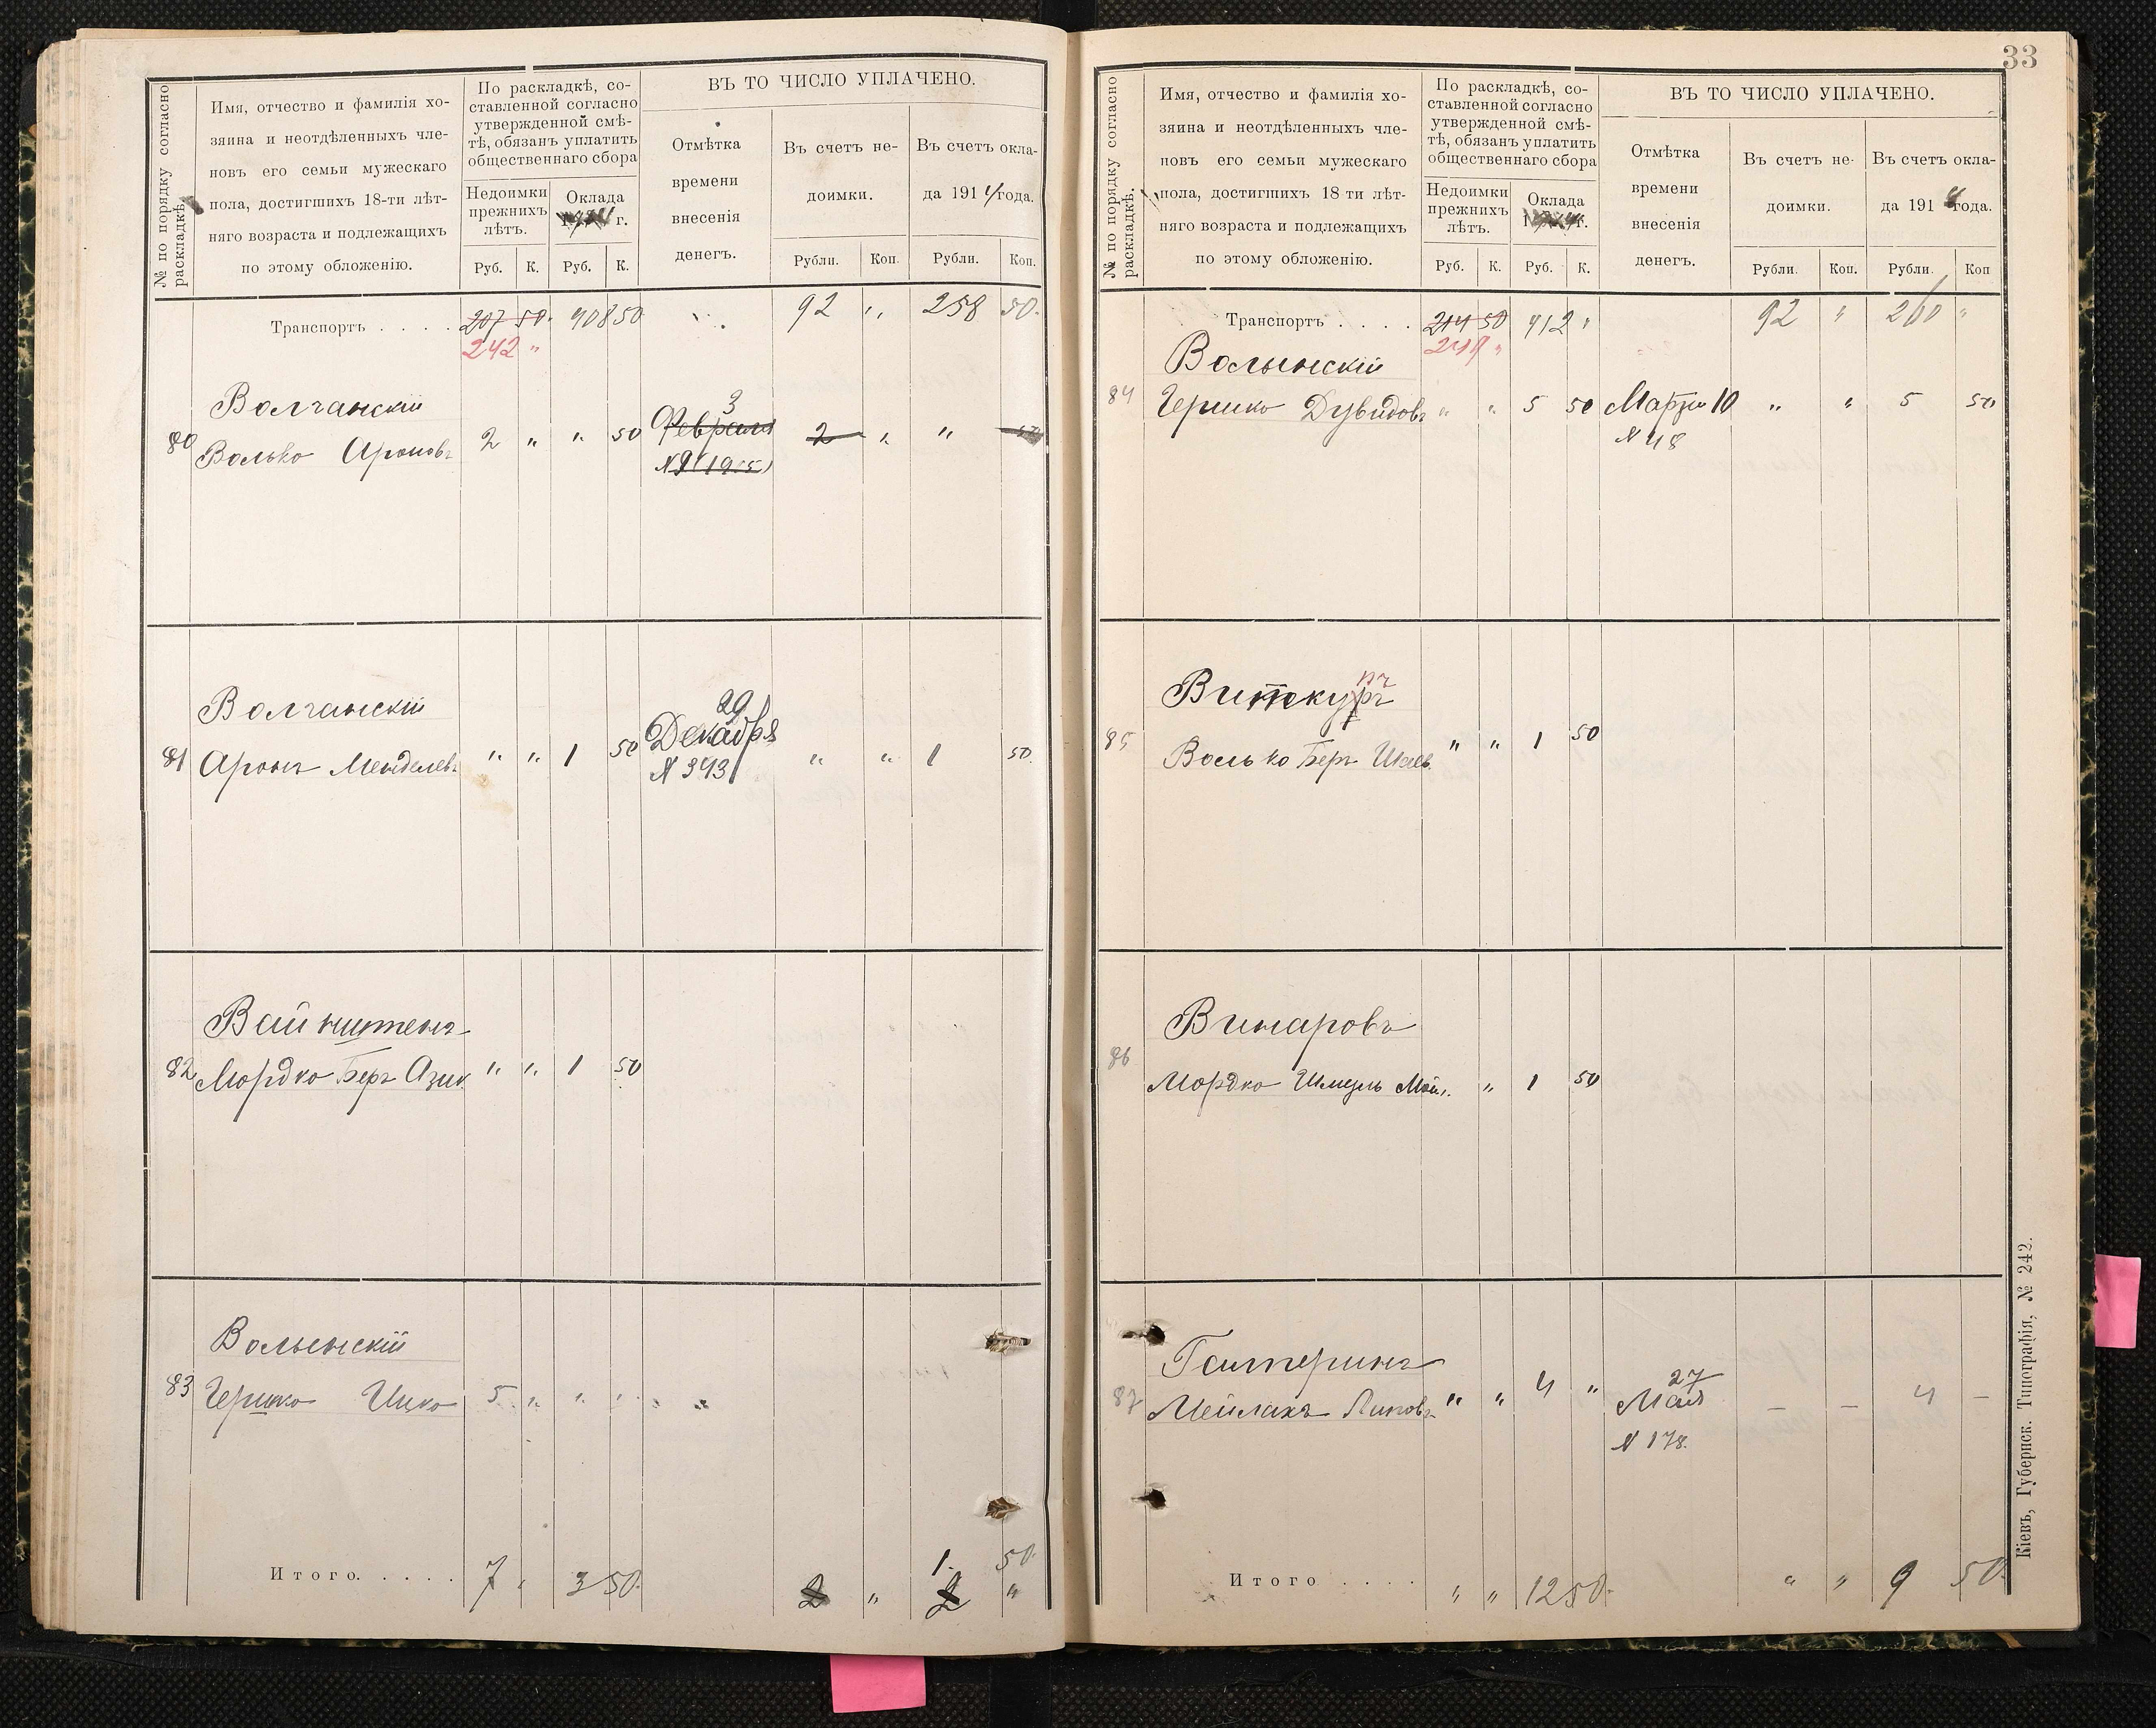 № по порядку согласно
раскладкѣ.
Имя, отчество и фамилія хо-
зяина и неотдѣленныхъ чле-
новъ его семьи мужескаго
пола, достигшихъ 18-ти лѣт-
няго возраста и подлежащихъ
по этому обложенію.
По раскладкѣ, со-
ставленной согласно
утвержденной смѣ-
тѣ, обязанъ уплатить
общественнаго сбора
Недоимки
прежнихъ
лѣтъ.
Оклада
г.
Руб. К. Руб. К.
ВЪ ТО ЧИСЛО УПЛАЧЕНО.
Отмѣтка
времени
внесенія
денегъ.
Въ счетъ не-
доимки.
Въ счетъ окла-
да 1914 года.
Рубли. Коп. Рубли. Коп.
Транспортъ . . . . 207 50 408 50 92 " 258 50
242 "
Волчанскій
80 Волько Ароновъ 2 " " 50 3 Февраля 2 " " 50
№ 9 (1915)
Волчанскій
81 Аронъ Менделевъ " " 1 50 29 Декабря " " 1 50
№ 343
Вайнштенъ
82 Мордко Беръ Азик " " 1 50
Волынскій
83 Гершко Ицко 5 " " "
Итого. . . . . 7 " 3 50 1 50
2 " 2 "
33
№ по порядку согласно
раскладкѣ.
Имя, отчество и фамилія хо-
зяина и неотдѣленныхъ чле-
новъ его семьи мужескаго
пола, достигшихъ 18-ти лѣт-
няго возраста и подлежащихъ
по этому обложенію.
По раскладкѣ, со-
ставленной согласно
утвержденной смѣ-
тѣ, обязанъ уплатить
общественнаго сбора
Недоимки
прежнихъ
лѣтъ.
Оклада
г.
Руб. К. Руб. К.
ВЪ ТО ЧИСЛО УПЛАЧЕНО.
Отмѣтка
времени
внесенія
денегъ.
Въ счетъ не-
доимки.
Въ счетъ окла-
да 1914 года.
Рубли. Коп. Рубли. Коп
Транспортъ . . . . 214 50 412 " 92 " 260 "
249 "
Волынскій
84 Гершко Дувидовъ " " 5 50 Марта 10 " " 5 50
№ 48
Виткупъ
85 Волько Беръ " " 1 50
Винаровъ
86 Мордко Шмуль " 1 50
Гантеринъ
87 Мейлахъ Липовъ " " 4 " 27 Мая – – 4 –
№ 178.
Итого . . . . " " 12 50 " " 9 50
Кіевъ, Губернск. Типографія, № 242.